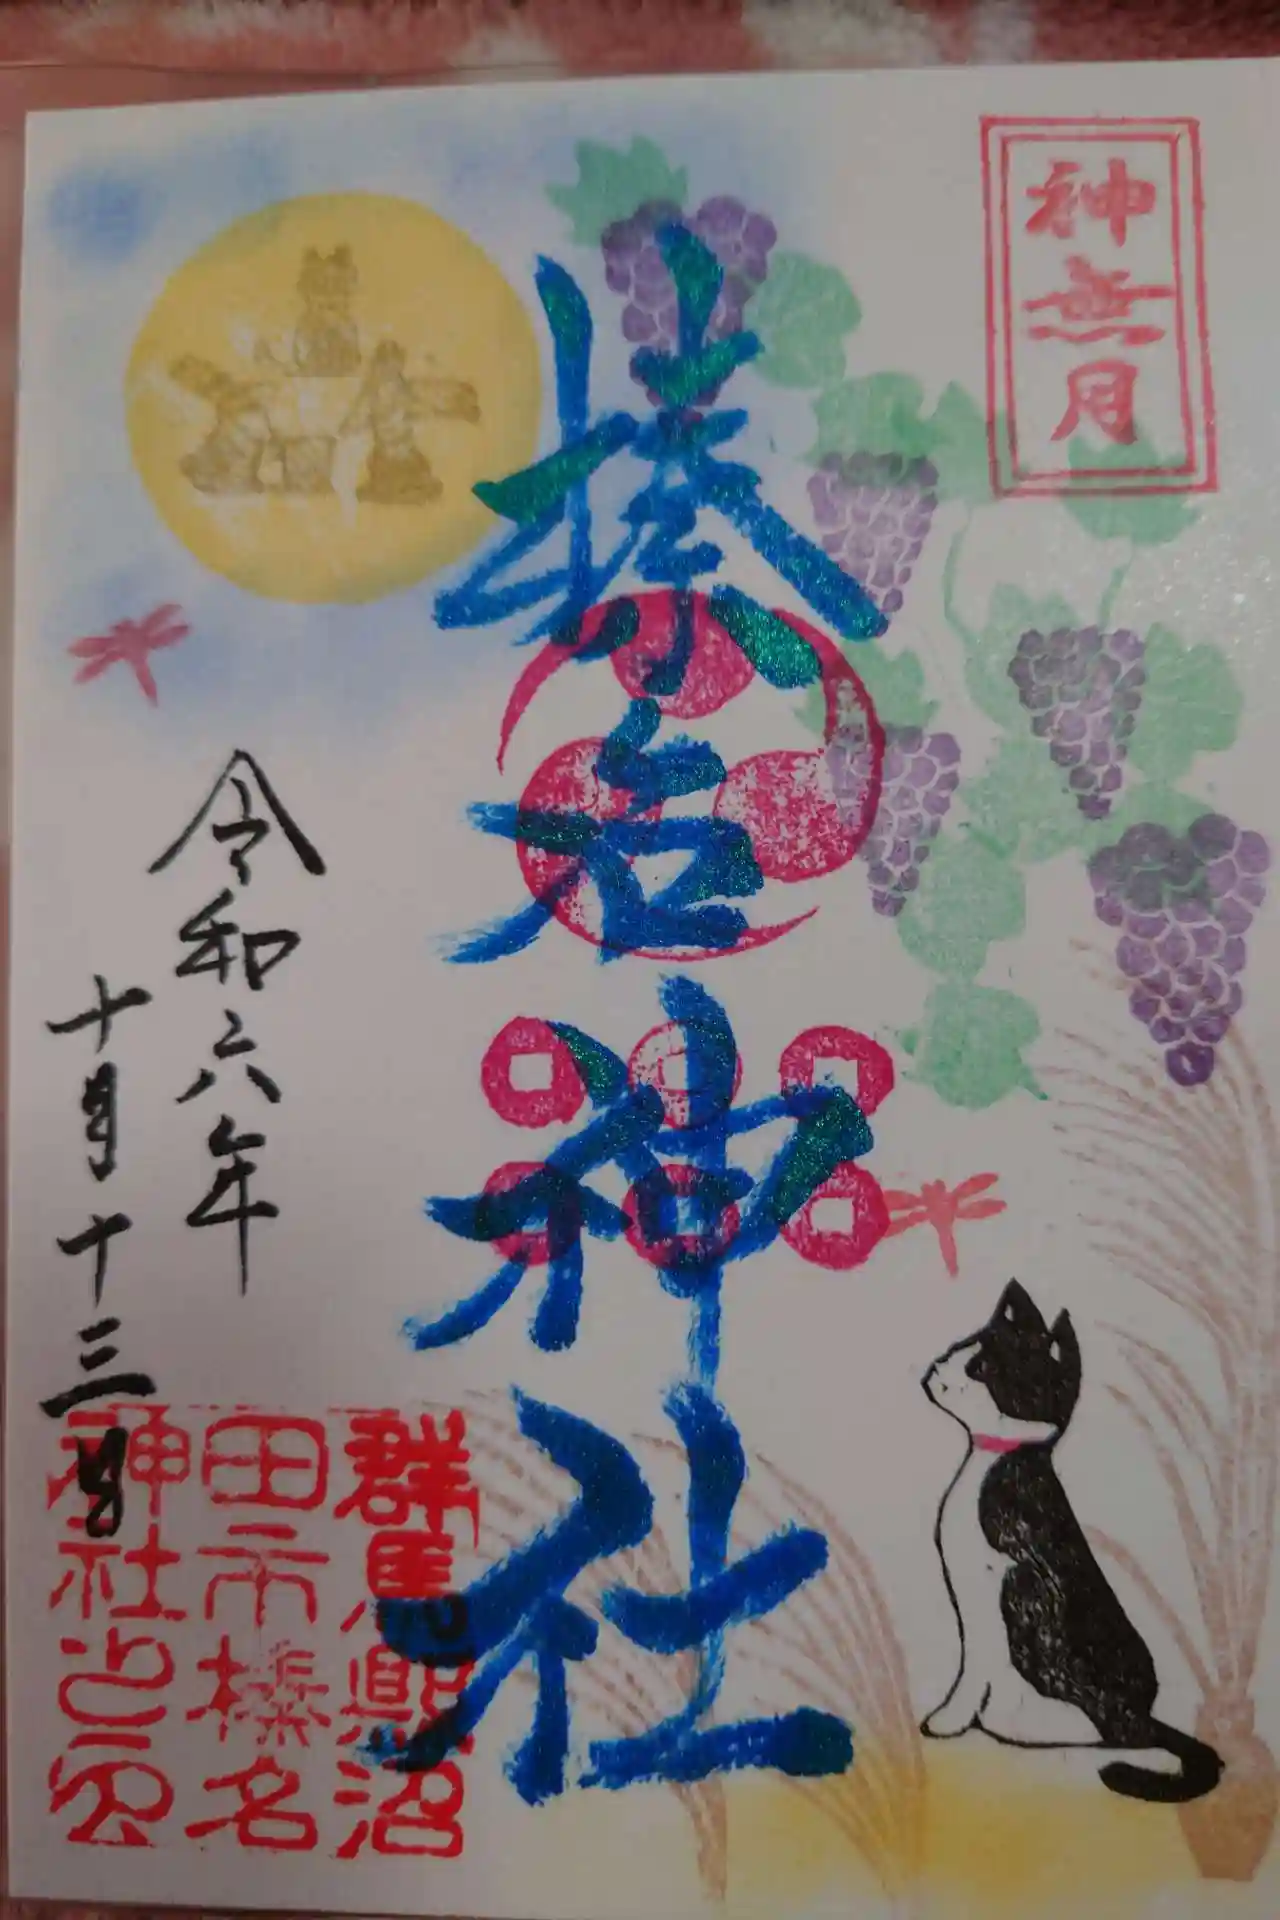 神無月
榛名神社
令和六年
十月十三日
群馬縣沼
田市榛名
神社之印